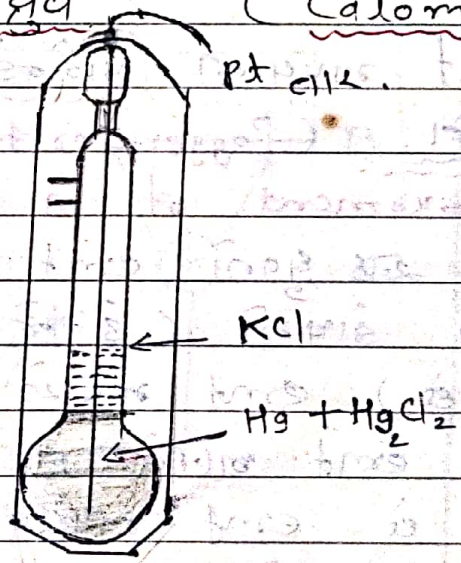 ( Calom
Pt
KCl
Hg + Hg2Cl2